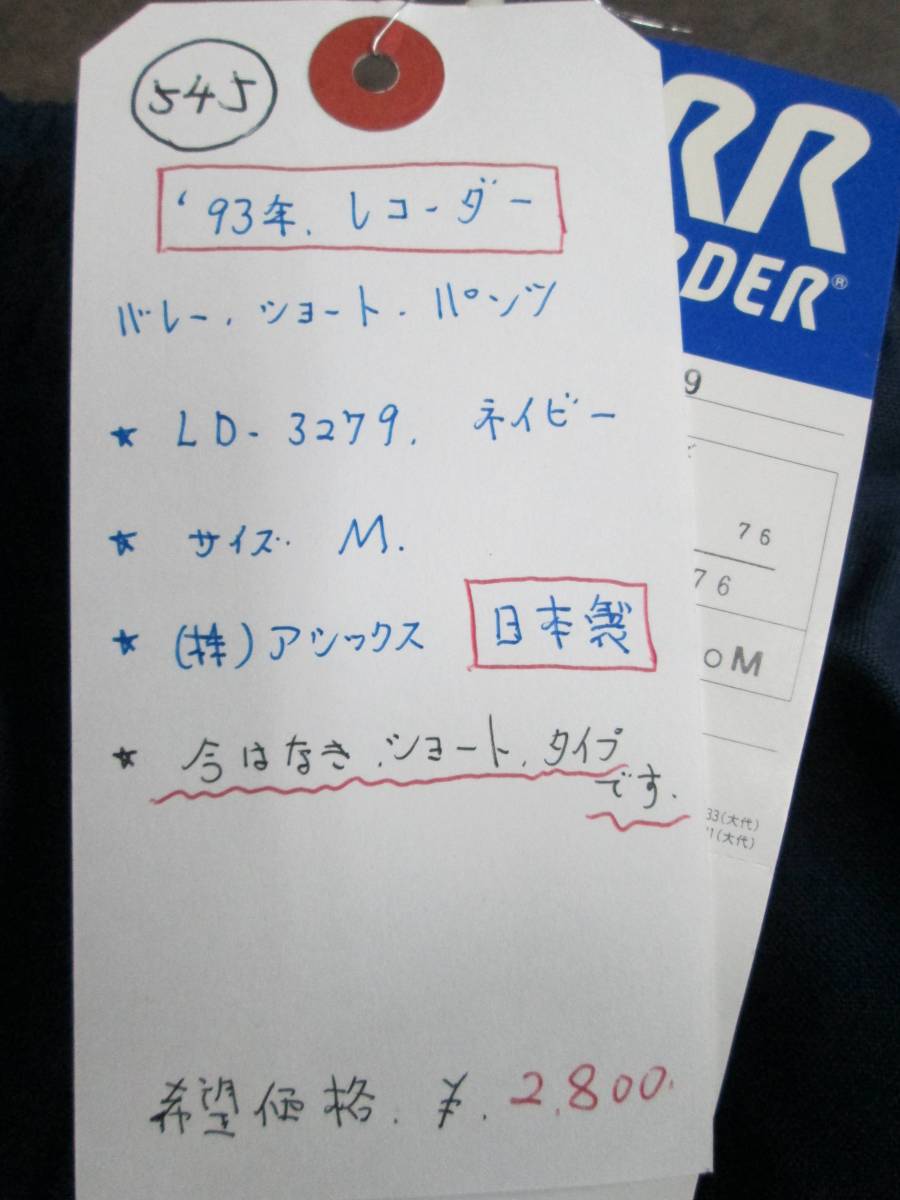 545
'93年. レコーダー
バレー. ショート. パンツ
★ LD-3279. ネイビー
★ サイズ. M.
★ (株)アシックス 日本製
★ 今はなき.ショート.タイプ
です.
希望価格. ¥. 2.800.
RR
RDER®
9
76
76
M
33(大代)
1(大代)